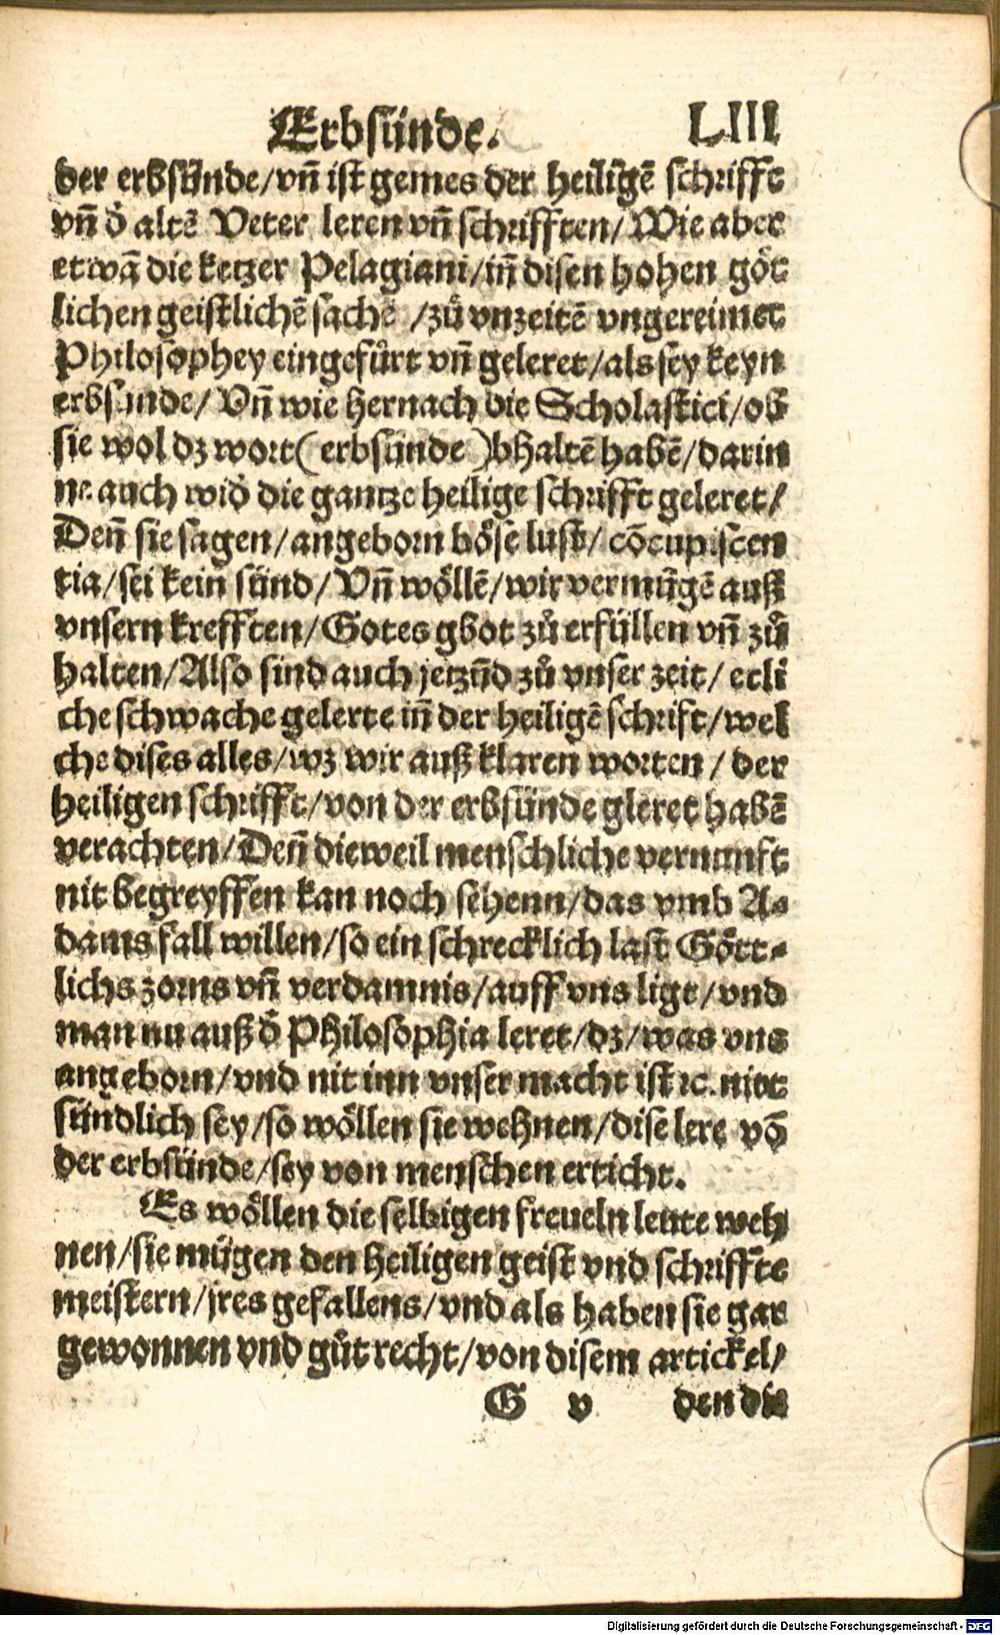 Erbsünde. LIII
der erbsünde/vñ ist gemes der heiligē schrifft
vñ d̕ altē Veter leren vñ schrifften/Wie aber
etwā die ketzer Pelagiani/iñ disen hohen göt
lichen geistlichē sachē /zů vnzeitē vngereimet
Philosophey eingefůrt vñ geleret/als sey keyn
erbsünde/ Vñ wie hernach die Scholastici/ob
sie wol dz wort( erbsünde )bhaltē habē/darin
ne auch wid̕ die gantze heilige schrifft geleret/
Deñ sie sagen/angeborn böse lust/ cōcupiscen
tia/sei kein sünd/Vñ wöllē/wir vermügē auß
vnsern krefften/Gotes gbot zů erfüllen vñ zů
halten/Also sind auch jetzūd zů vnser zeit/ etli
che schwache gelerte iñ der heiligē schrift/wel
che dises alles/wz wir auß klaren worten/ der
heiligen schrifft/von der erbsünde gleret habē
verachten/Deñ dieweil menschliche vernunft
nit begreyffen kan noch sehenn/das vmb A⸗
dams fall willen/so ein schrecklich last Gött⸗
lichs zorns vñ verdamnis/auff vns ligt/vnd
man nu auß d̕ Philosophia leret/dz/was vns
angeborn/vnd nit inn vnser macht ist ꝛc. nitt
sündlich sey/so wöllen sie wehnen/dise lere vō
der erbsünde/sey von menschen erticht.
Es wöllen die selbigen freueln leute weh
nen/sie mügen den heiligen geist vnd schriffte
meistern/jres gefallens/vnd als haben sie gar
gewonnen vnd gůt recht/von disem artickel/
G v den die
Digitalisierung gefördert durch die Deutsche Forschungsgemeinschaft - DFG